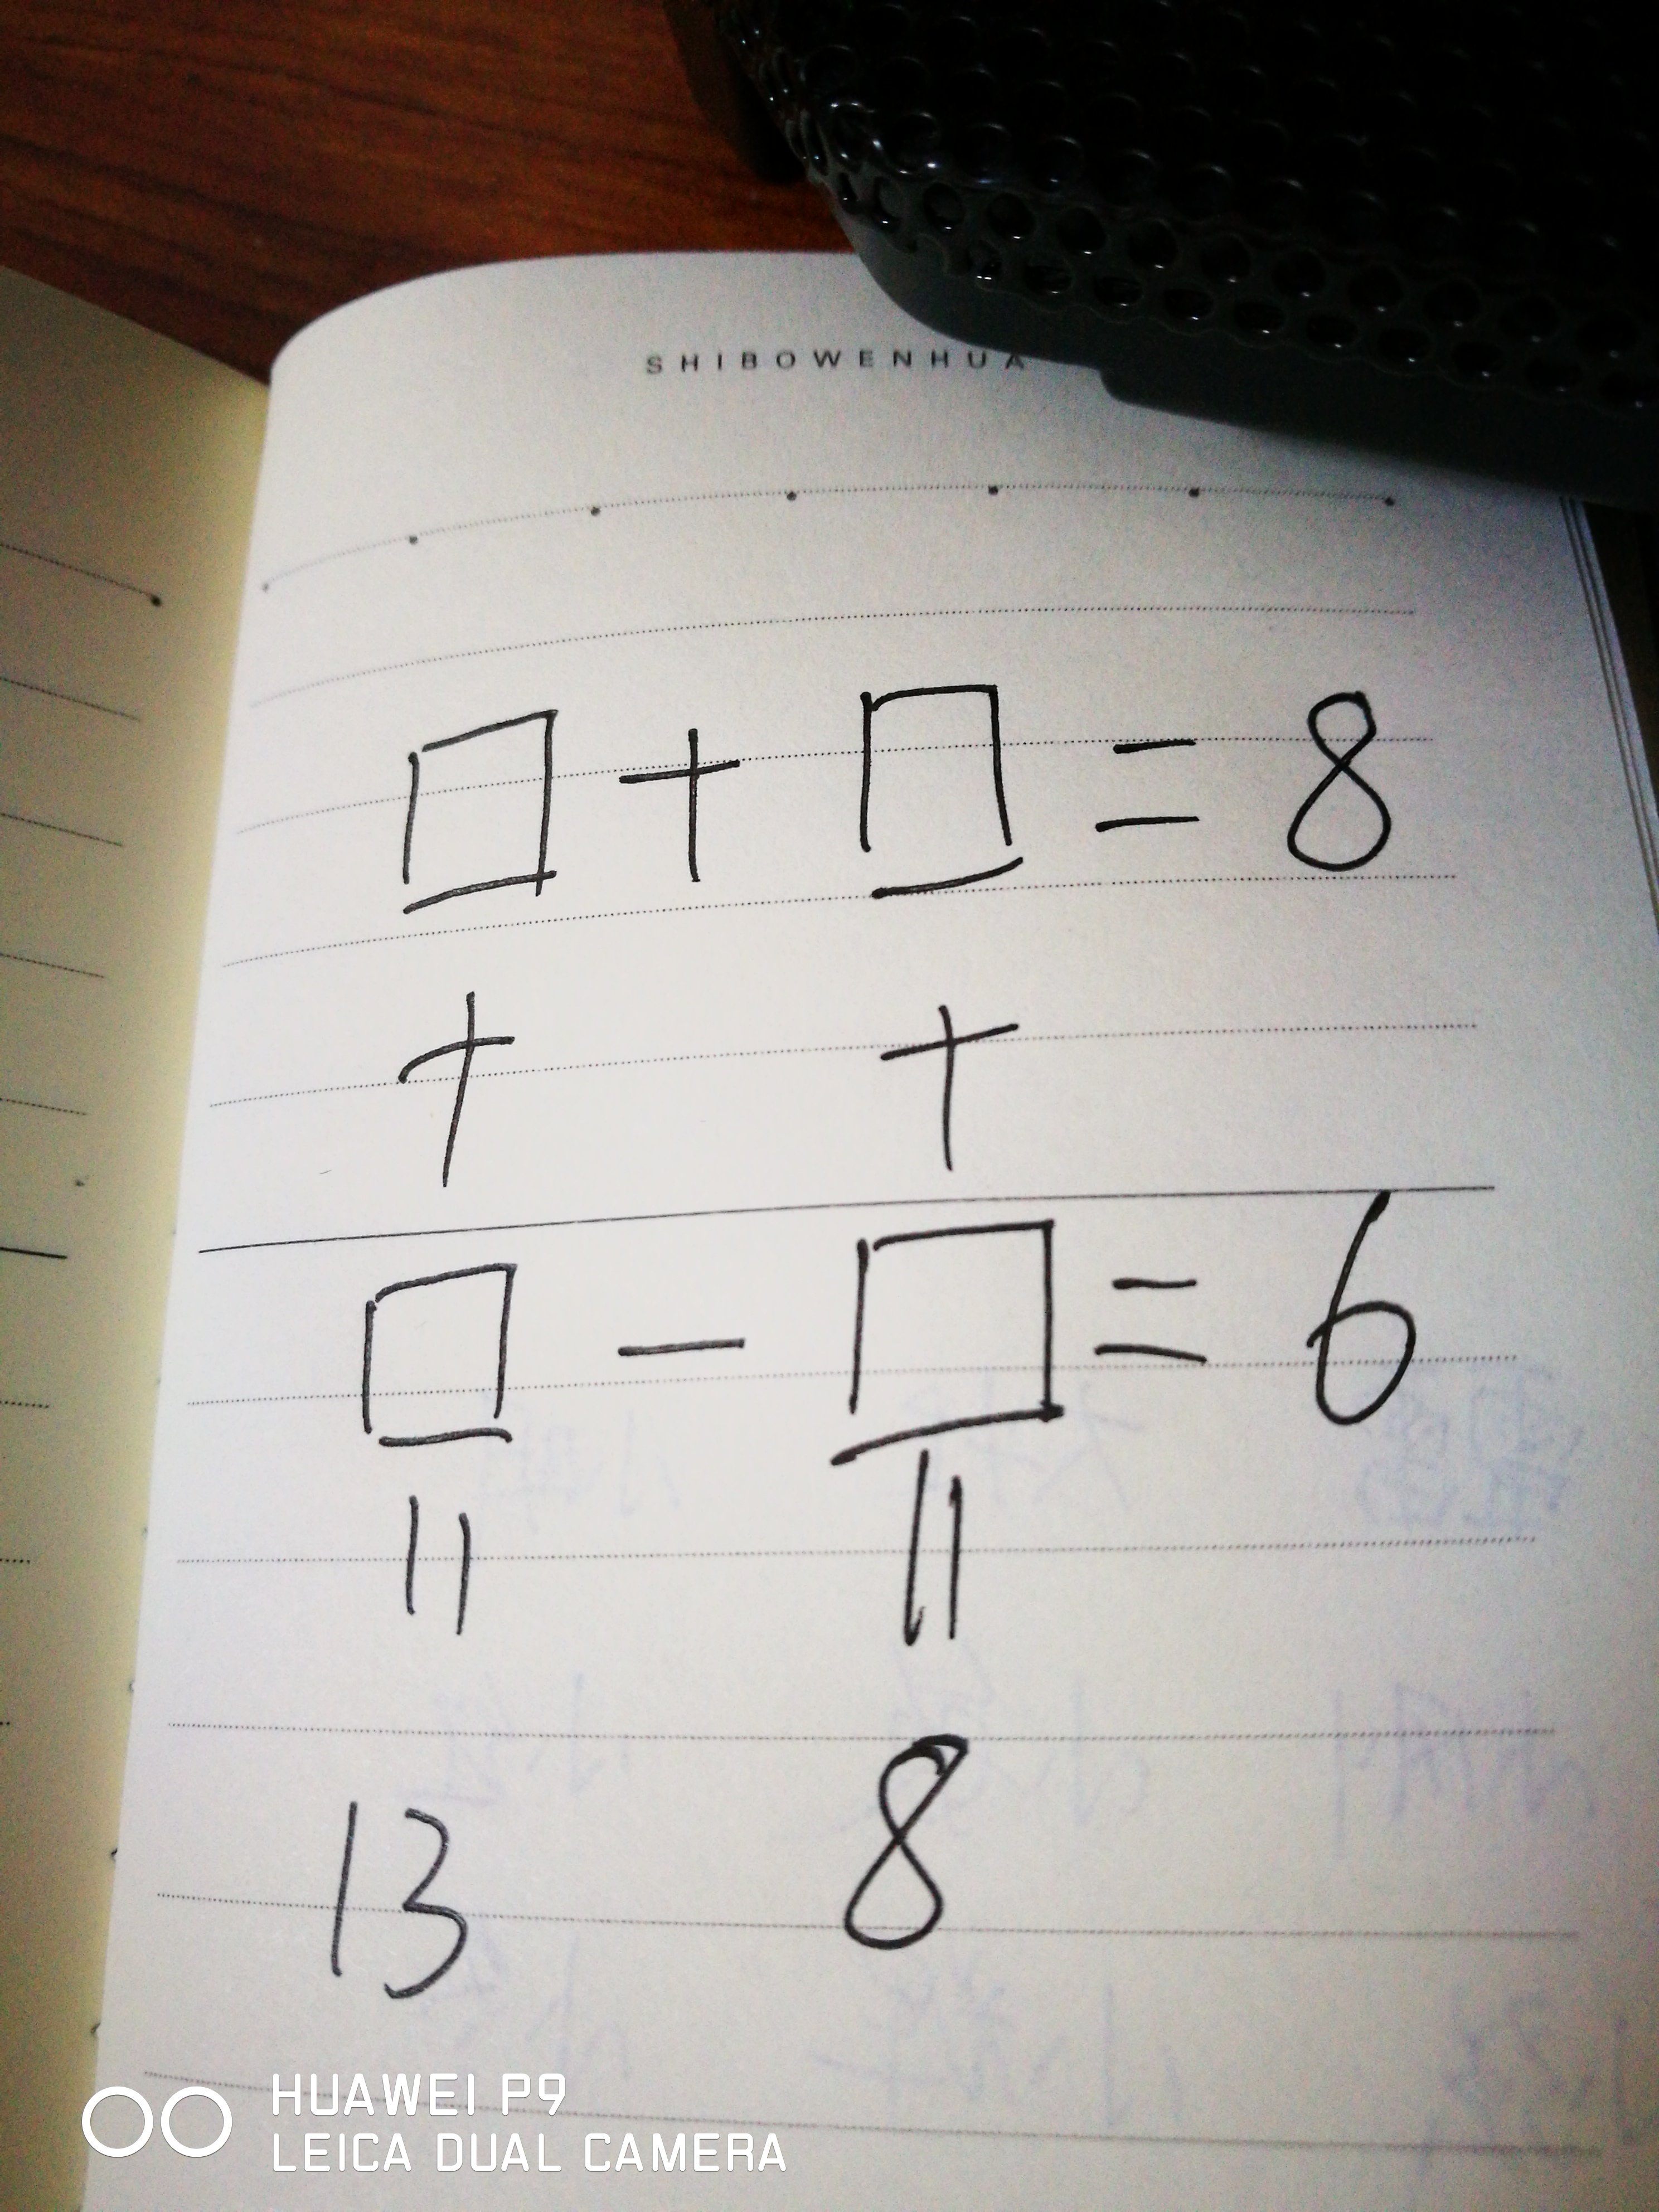 SHIBOWENHUA
□ + □ = 8
+ +
□ - □ = 6
|| ||
13 8
HUAWEI P9
LEICA DUAL CAMERA